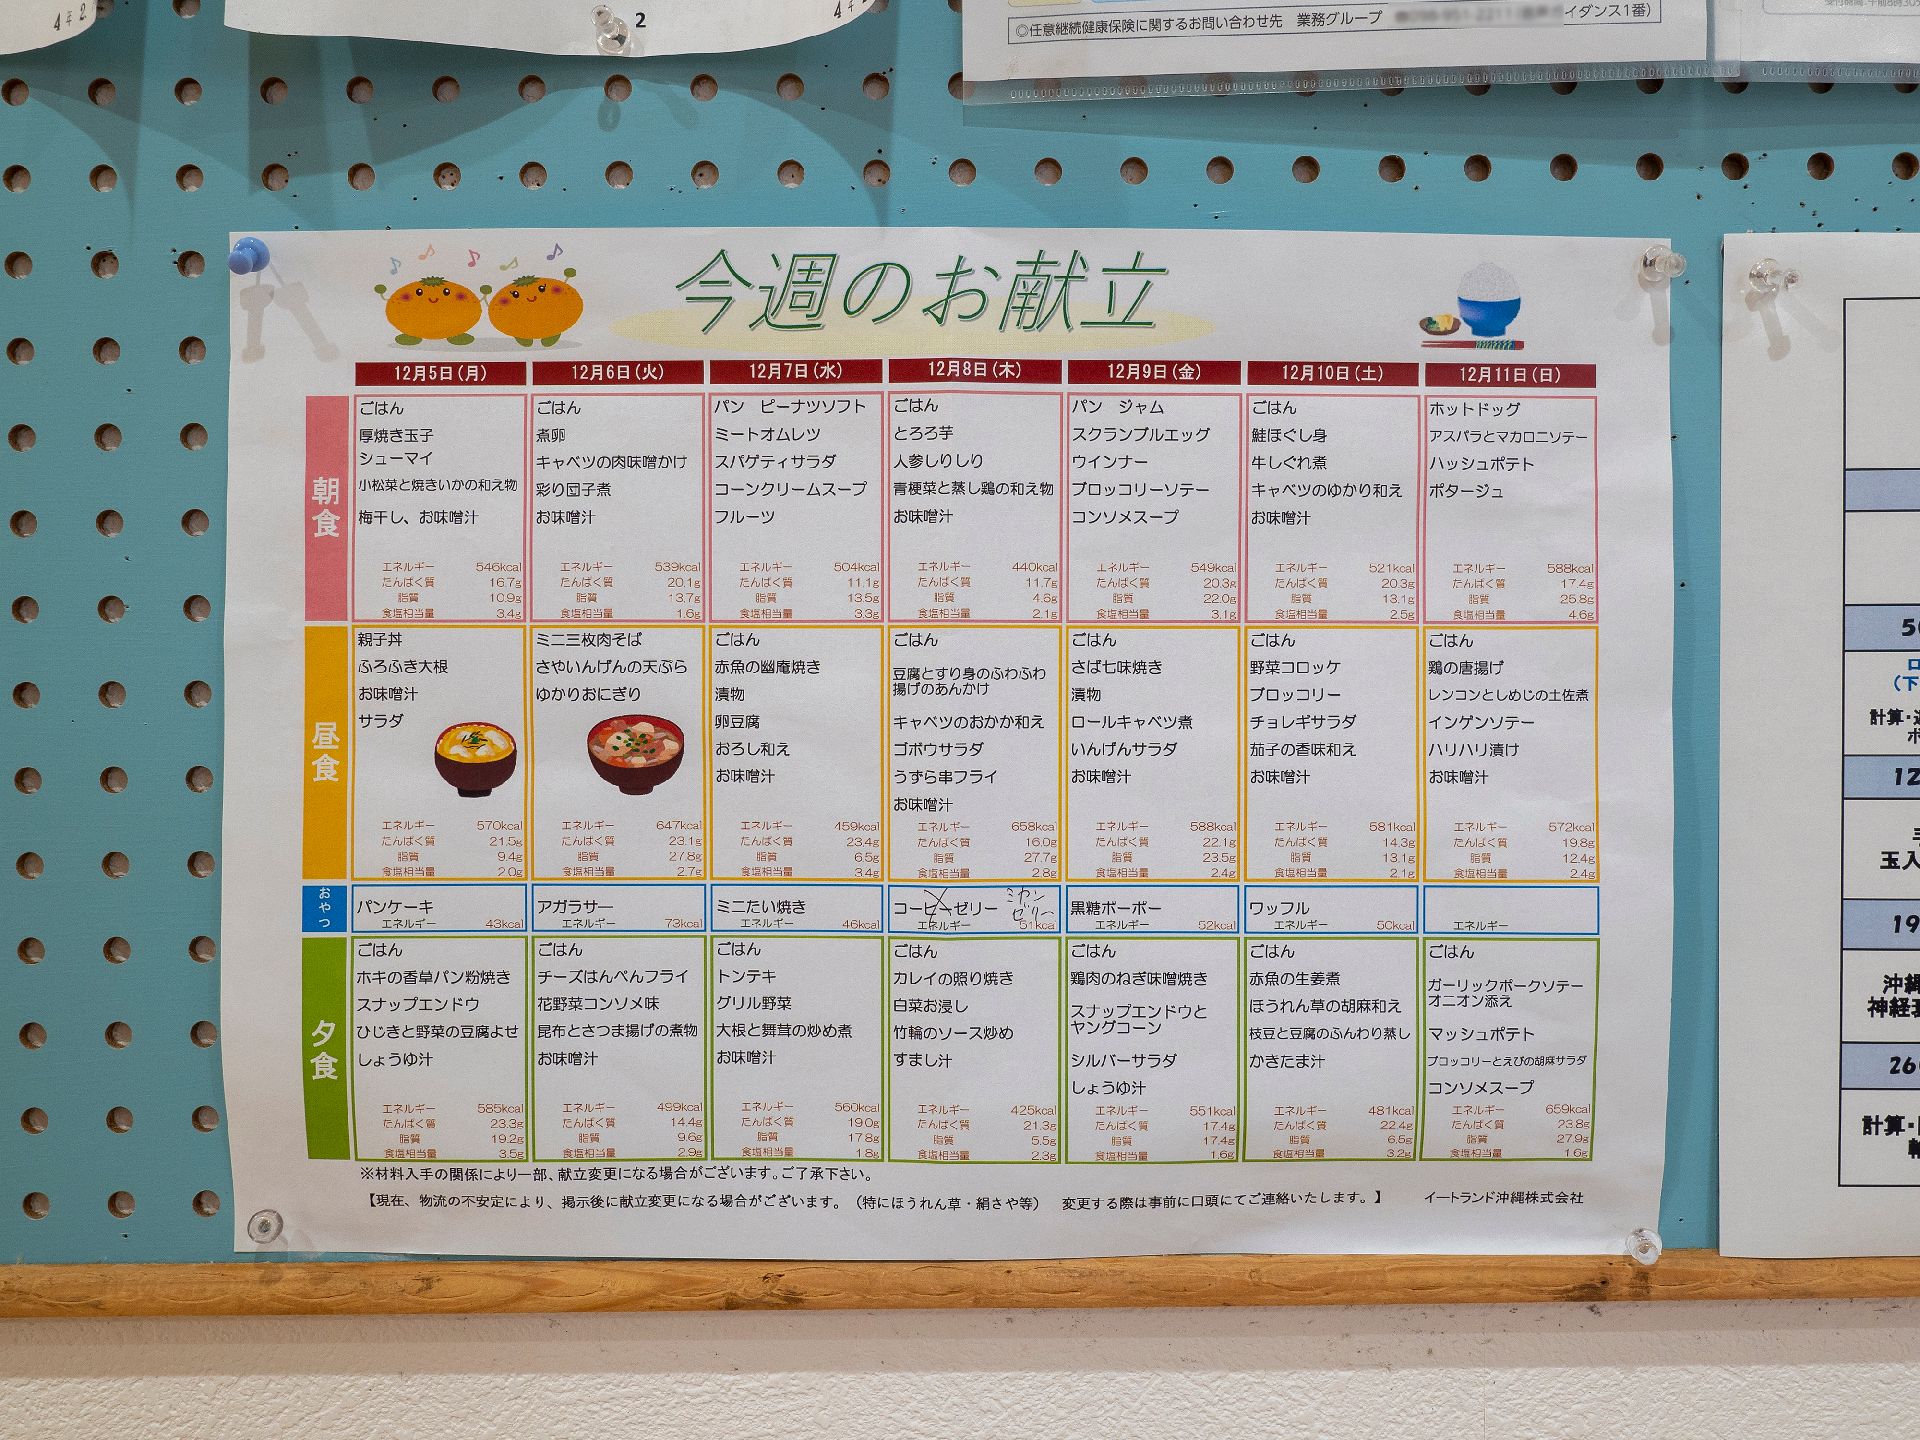 4年2
2
4年2
◎任意継続健康保険に関するお問い合わせ先 業務グループ イダンス1番)
今週のお献立
12月5日(月) 12月6日(火) 12月7日(水) 12月8日(木) 12月9日(金) 12月10日(土) 12月11日(日)
朝食
ごはん
厚焼き玉子
シューマイ
小松菜と焼きいかの和え物
梅干し、お味噌汁
エネルギー 546kcal
たんぱく質 16.7g
脂質 10.9g
食塩相当量 3.4g
ごはん
煮卵
キャベツの肉味噌かけ
彩り団子煮
お味噌汁
エネルギー 539kcal
たんぱく質 20.1g
脂質 13.7g
食塩相当量 1.6g
パン ピーナツソフト
ミートオムレツ
スパゲティサラダ
コーンクリームスープ
フルーツ
エネルギー 504kcal
たんぱく質 11.1g
脂質 13.5g
食塩相当量 3.3g
ごはん
とろろ芋
人参しりしり
青梗菜と蒸し鶏の和え物
お味噌汁
エネルギー 440kcal
たんぱく質 11.7g
脂質 4.8g
食塩相当量 2.1g
パン ジャム
スクランブルエッグ
ウインナー
ブロッコリーソテー
コンソメスープ
エネルギー 549kcal
たんぱく質 20.3g
脂質 22.0g
食塩相当量 3.1g
ごはん
鮭ほぐし身
牛しぐれ煮
キャベツのゆかり和え
お味噌汁
エネルギー 521kcal
たんぱく質 20.3g
脂質 13.1g
食塩相当量 2.5g
ホットドッグ
アスパラとマカロニソテー
ハッシュポテト
ポタージュ
エネルギー 588kcal
たんぱく質 17.4g
脂質 25.8g
食塩相当量 4.6g
昼食
親子丼
ふろふき大根
お味噌汁
サラダ
エネルギー 570kcal
たんぱく質 21.5g
脂質 9.4g
食塩相当量 2.0g
ミニ三枚肉そば
さやいんげんの天ぷら
ゆかりおにぎり
エネルギー 647kcal
たんぱく質 23.1g
脂質 27.8g
食塩相当量 2.7g
ごはん
赤魚の幽庵焼き
漬物
卵豆腐
おろし和え
お味噌汁
エネルギー 459kcal
たんぱく質 23.4g
脂質 6.5g
食塩相当量 3.4g
ごはん
豆腐とすり身のふわふわ
揚げのあんかけ
キャベツのおかか和え
ゴボウサラダ
うずら串フライ
お味噌汁
エネルギー 658kcal
たんぱく質 16.0g
脂質 27.7g
食塩相当量 2.8g
ごはん
さば七味焼き
漬物
ロールキャベツ煮
いんげんサラダ
お味噌汁
エネルギー 588kcal
たんぱく質 22.1g
脂質 23.5g
食塩相当量 2.4g
ごはん
野菜コロッケ
ブロッコリー
チョレギサラダ
茄子の香味和え
お味噌汁
エネルギー 581kcal
たんぱく質 14.3g
脂質 13.1g
食塩相当量 2.1g
ごはん
鶏の唐揚げ
レンコンとしめじの土佐煮
インゲンソテー
ハリハリ漬け
お味噌汁
エネルギー 572kcal
たんぱく質 19.8g
脂質 12.4g
食塩相当量 2.4g
おやつ
パンケーキ
エネルギー 43kcal
アガラサー
エネルギー 73kcal
ミニたい焼き
エネルギー 46kcal
コーヒーゼリー ミカン
ゼリー
エネルギー 51kcal
黒糖ポーポー
エネルギー 52kcal
ワッフル
エネルギー 50kcal
エネルギー
夕食
ごはん
ホキの香草パン粉焼き
スナップエンドウ
ひじきと野菜の豆腐よせ
しょうゆ汁
エネルギー 585kcal
たんぱく質 23.3g
脂質 19.2g
食塩相当量 3.5g
ごはん
チーズはんぺんフライ
花野菜コンソメ味
昆布とさつま揚げの煮物
お味噌汁
エネルギー 499kcal
たんぱく質 14.4g
脂質 9.6g
食塩相当量 2.9g
ごはん
トンテキ
グリル野菜
大根と舞茸の炒め煮
お味噌汁
エネルギー 560kcal
たんぱく質 19.0g
脂質 17.8g
食塩相当量 1.8g
ごはん
カレイの照り焼き
白菜お浸し
竹輪のソース炒め
すまし汁
エネルギー 425kcal
たんぱく質 21.3g
脂質 5.5g
食塩相当量 2.3g
ごはん
鶏肉のねぎ味噌焼き
スナップエンドウと
ヤングコーン
シルバーサラダ
しょうゆ汁
エネルギー 551kcal
たんぱく質 17.4g
脂質 17.4g
食塩相当量 1.6g
ごはん
赤魚の生姜煮
ほうれん草の胡麻和え
枝豆と豆腐のふんわり蒸し
かきたま汁
エネルギー 481kcal
たんぱく質 22.4g
脂質 6.5g
食塩相当量 3.2g
ごはん
ガーリックポークソテー
オニオン添え
マッシュポテト
ブロッコリーとえびの胡麻サラダ
コンソメスープ
エネルギー 659kcal
たんぱく質 23.8g
脂質 27.9g
食塩相当量 1.6g
※材料入手の関係により一部、献立変更になる場合がございます。ご了承下さい。
【現在、物流の不安定により、掲示後に献立変更になる場合がございます。(特にほうれん草・絹さや等) 変更する際は事前に口頭にてご連絡いたします。】 イートランド沖縄株式会社
(下
計算・
12
玉入
19
沖縄
神経
26
計算・